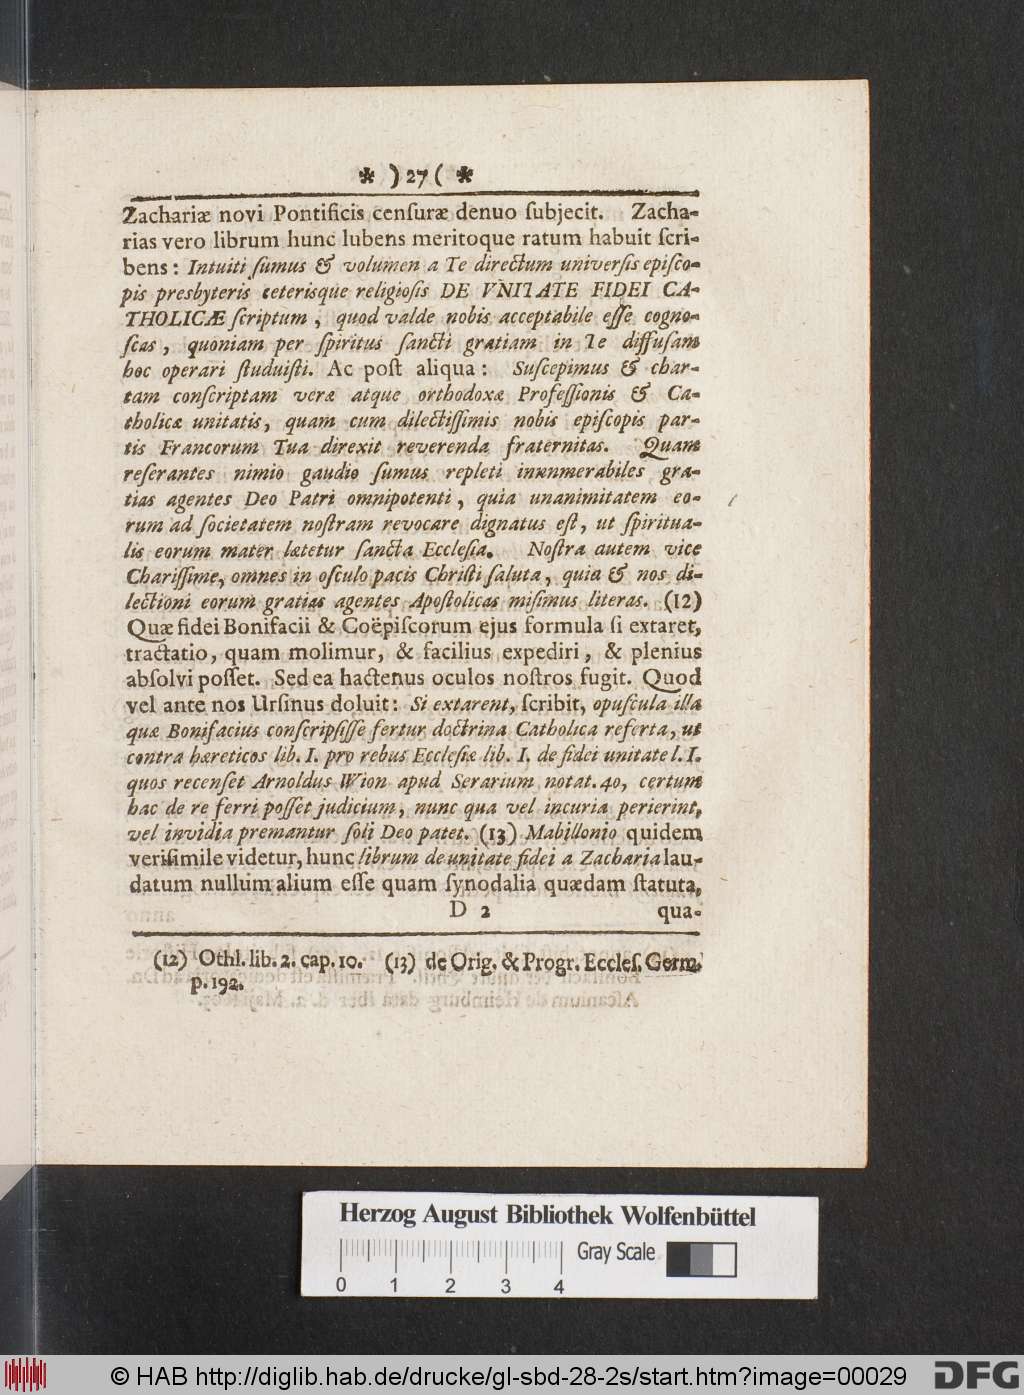 * ) 27 ( *
Zachariæ novi Pontificis cenſuræ denuo ſubjecit. Zacha-
rias vero librum hunc lubens meritoque ratum habuit ſcri-
bens: Intuiti ſumus & volumen a Te directum univerſis epiſco-
pis presbyteris ceterisque religioſis DE VNITATE FIDEI CA-
THOLICÆ ſcriptum, quod valde nobis acceptabile eſſe cogno-
ſcas, quoniam per ſpiritus ſancti gratiam in Te diffuſam
hoc operari ſtuduiſti. Ac poſt aliqua: Suſcepimus & char-
tam conſcriptam veræ atque orthodoxæ Profeſſionis & Ca-
tholicæ unitatis, quam cum dilectiſſimis nobis epiſcopis par-
tis Francorum Tua direxit reverenda fraternitas. Quam
reſerantes nimio gaudio ſumus repleti innnmerabiles gra-
tias agentes Deo Patri omnipotenti, quia unanimitatem eo-
rum ad ſocietatem noſtram revocare dignatus eſt, ut ſpiritua-
lis eorum mater lætetur ſancta Eccleſia. Noſtra autem vice
Chariſſime, omnes in oſculo pacis Chriſti ſaluta, quia & nos di-
lectioni eorum gratias agentes Apoſtolicas miſimus literas. (12)
Quæ fidei Bonifacii & Coëpiſcorum ejus formula ſi extaret,
tractatio, quam molimur, & facilius expediri, & plenius
abſolvi poſſet. Sed ea hactenus oculos noſtros fugit. Quod
vel ante nos Urſinus doluit: Si extarent, ſcribit, opuſcula illa
quæ Bonifacius conſcripſiſſe fertur doctrina Catholica referta, ut
contra hæreticos lib. I. pro rebus Eccleſiæ lib. I. de fidei unitate l. I.
quos recenſet Arnoldus Wion apud Serarium notat. 40, certum
hac de re ferri poſſet judicium, nunc qua vel incuria perierint,
vel invidia premantur ſoli Deo patet. (13) Mabillonio quidem
veriſimile videtur, hunc librum de unitate fidei a Zacharia lau-
datum nullum alium eſſe quam ſynodalia quædam ſtatuta,
D 2 qua-
(12) Othl. lib. 2. cap. 10. (13) de Orig. & Progr. Eccleſ. Germ.
p. 192.
Herzog August Bibliothek Wolfenbüttel
Gray Scale
0 1 2 3 4
© HAB http://diglib.hab.de/drucke/gl-sbd-28-2s/start.htm?image=00029
DFG